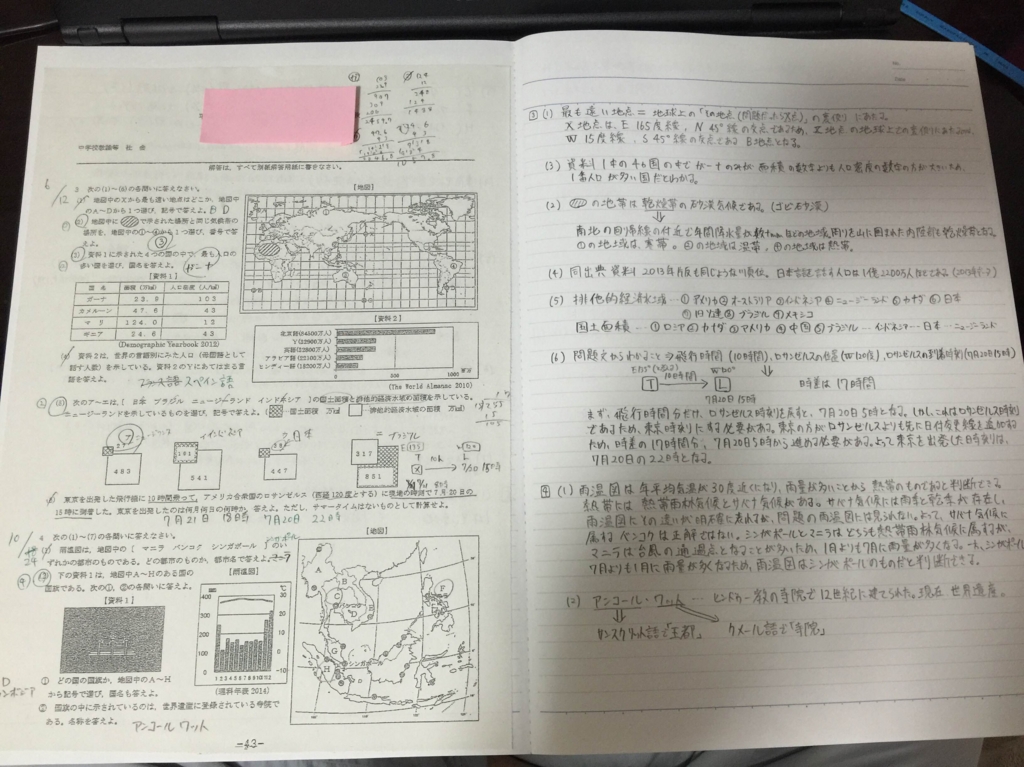 中学校教諭等 社会
解答は、すべて別紙解答用紙に書きなさい。
6/12
3 次の(1)~(6)の各問いに答えなさい。
(1) 地図中のXから最も遠い地点はどこか、地図中
のA~Dから1つ選び、記号で答えよ。B D
(2) 地図中に で示された場所と同じ気候帯の
場所を、地図中の①~④から1つ選び、番号で答
えよ。 ③
(3) 資料1に示された4つの国の中で、最も人口の
多い国を選び、国名を答えよ。 ガーナ
【資料1】
国名 面積(万㎢) 人口密度(人/㎢)
ガーナ 23.8 103
カメルーン 47.6 43
マリ 124.0 12
ギニア 24.6 43
(Demographic Yearbook 2012)
【地図】
(4) 資料2は、世界の言語別にみた人口(母国語として
話す人数)を示している。資料2のYにあてはまる言
語を答えよ。 スペイン語
【資料2】
北京語(84500万人)
Y(32900万人)
英語(32800万人)
アラビア語(22100万人)
ヒンディー語(18200万人)
0 500 1000
(The World Almanac 2010)
(5) 次のア~エは、[ 日本 ブラジル ニュージーランド インドネシア ]の国土面積と排他的経済水域の面積を示している。
ニュージーランドを示しているものを選び、記号で答えよ。( …国土面積 万㎢ …排他的経済水域の面積 万㎢)
ニュージーランド
27
483
インドネシア
191
541
日本
38
447
ブラジル
317
851
(6) 東京を出発した飛行機に10時間乗って、アメリカ合衆国のロサンゼルス(西経120度とする)に現地の時刻で7月20日の
15時に到着した。東京を出発したのは何月何日の何時か、答えよ。ただし、サマータイムはないものとして計算せよ。
7月20日 22時
4 次の(1)~(7)の各問いに答えなさい。
(1) 雨温図は、地図中の[ マニラ バンコク シンガポール ]のい
ずれかの都市のものである。どの都市のものか、都市名で答えよ。
シンガポール
(2) 下の資料1は、地図中A~Hのある国の
国旗である。次の①、②の各問いに答えよ。
【資料1】
【雨温図】
(理科年表2014)
【地図】
A
B
C
バンコク
D
E
F
G
シンガポール
H
① どの国の国旗か、地図中のA~H
から記号で選び、国名も答えよ。
D
カンボジア
② 国旗の中に示されているのは、世界遺産に登録されている寺院で
ある。名称を答えよ。 アンコールワット
-43-
3 (1) 最も遠い地点=地球上の
X地点は、E165度線、N45°線の交点であるため、
W15度線、S45°線の交点であるB地点となる。
(3) 資料1中の4か国の中で
1番人口が多い国だとわかる。
(2) の地帯は乾燥帯の砂漠気候である。(ゴビ砂漠)
①の地域は、寒帯。②の地域は温帯、④の地域は熱帯。
(4) 同出典資料2013年版も同じような順位。日本語を話す人口は1億2200万人
(5) 排他的経済水域…①アメリカ②オーストラリア③インドネシア④ニュージーランド⑤カナダ⑥日本
⑦旧ソ連⑧ブラジル⑨メキシコ
国土面積…①ロシア②カナダ③アメリカ④中国⑤ブラジル…インドネシア…日本…ニュージーランド
(6) 問題文からわかること⇒飛行時間(10時間)、ロサンゼルスの位置(W120度)、ロサンゼルスの到着時刻(7月20日15時)
E135° W120°
T 10時間 L 時差は17時間
7月20日15時
まず、飛行時間分だけ、ロサンゼルス時刻を戻すと、7月20日5時となる。しかし、これはロサンゼルス時刻
であるため、東京時刻にする必要がある。東京の方がロサンゼルスよりも先に日付変更線を通過する
ため、時差の17時間分、7月20日5時から進める必要がある。よって東京を出発した時刻は、
7月20日の22時となる。
4 (1) 雨温図は年平均気温が30度近くになり、雨量が多いことから熱帯のものだと判断できる。
熱帯には熱帯雨林気候とサバナ気候がある。サバナ気候には雨季と乾季が存在し、
雨温図にその違いが明確に表れるが、問題の雨温図には見られない。よって、サバナ気候に
属するバンコクは正解ではない。シンガポールとマニラはどちらも熱帯雨林気候に属するが、
マニラは台風の通過点となることが多いため、1月よりも7月に雨量が多くなる。一方、シンガポールは
7月よりも1月に雨量が多くなるため、雨温図はシンガポールのものだと判断できる。
(2) アンコール・ワット … ヒンドゥー教の寺院で12世紀に建てられた。現在世界遺産。
サンスクリット語で「王都」 クメール語で「寺院」